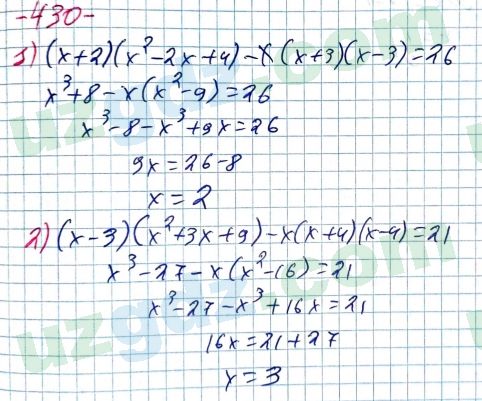 -430-
1) (x+2)(x²-2x+4)-x(x+3)(x-3)=26
x³+8-x(x²-9)=26
x³-8-x³+9x=26
9x=26-8
x=2
2) (x-3)(x²+3x+9)-x(x+4)(x-4)=21
x³-27-x(x²-16)=21
x³-27-x³+16x=21
16x=21+27
x=3
uzgdz.com
uzgdz.com